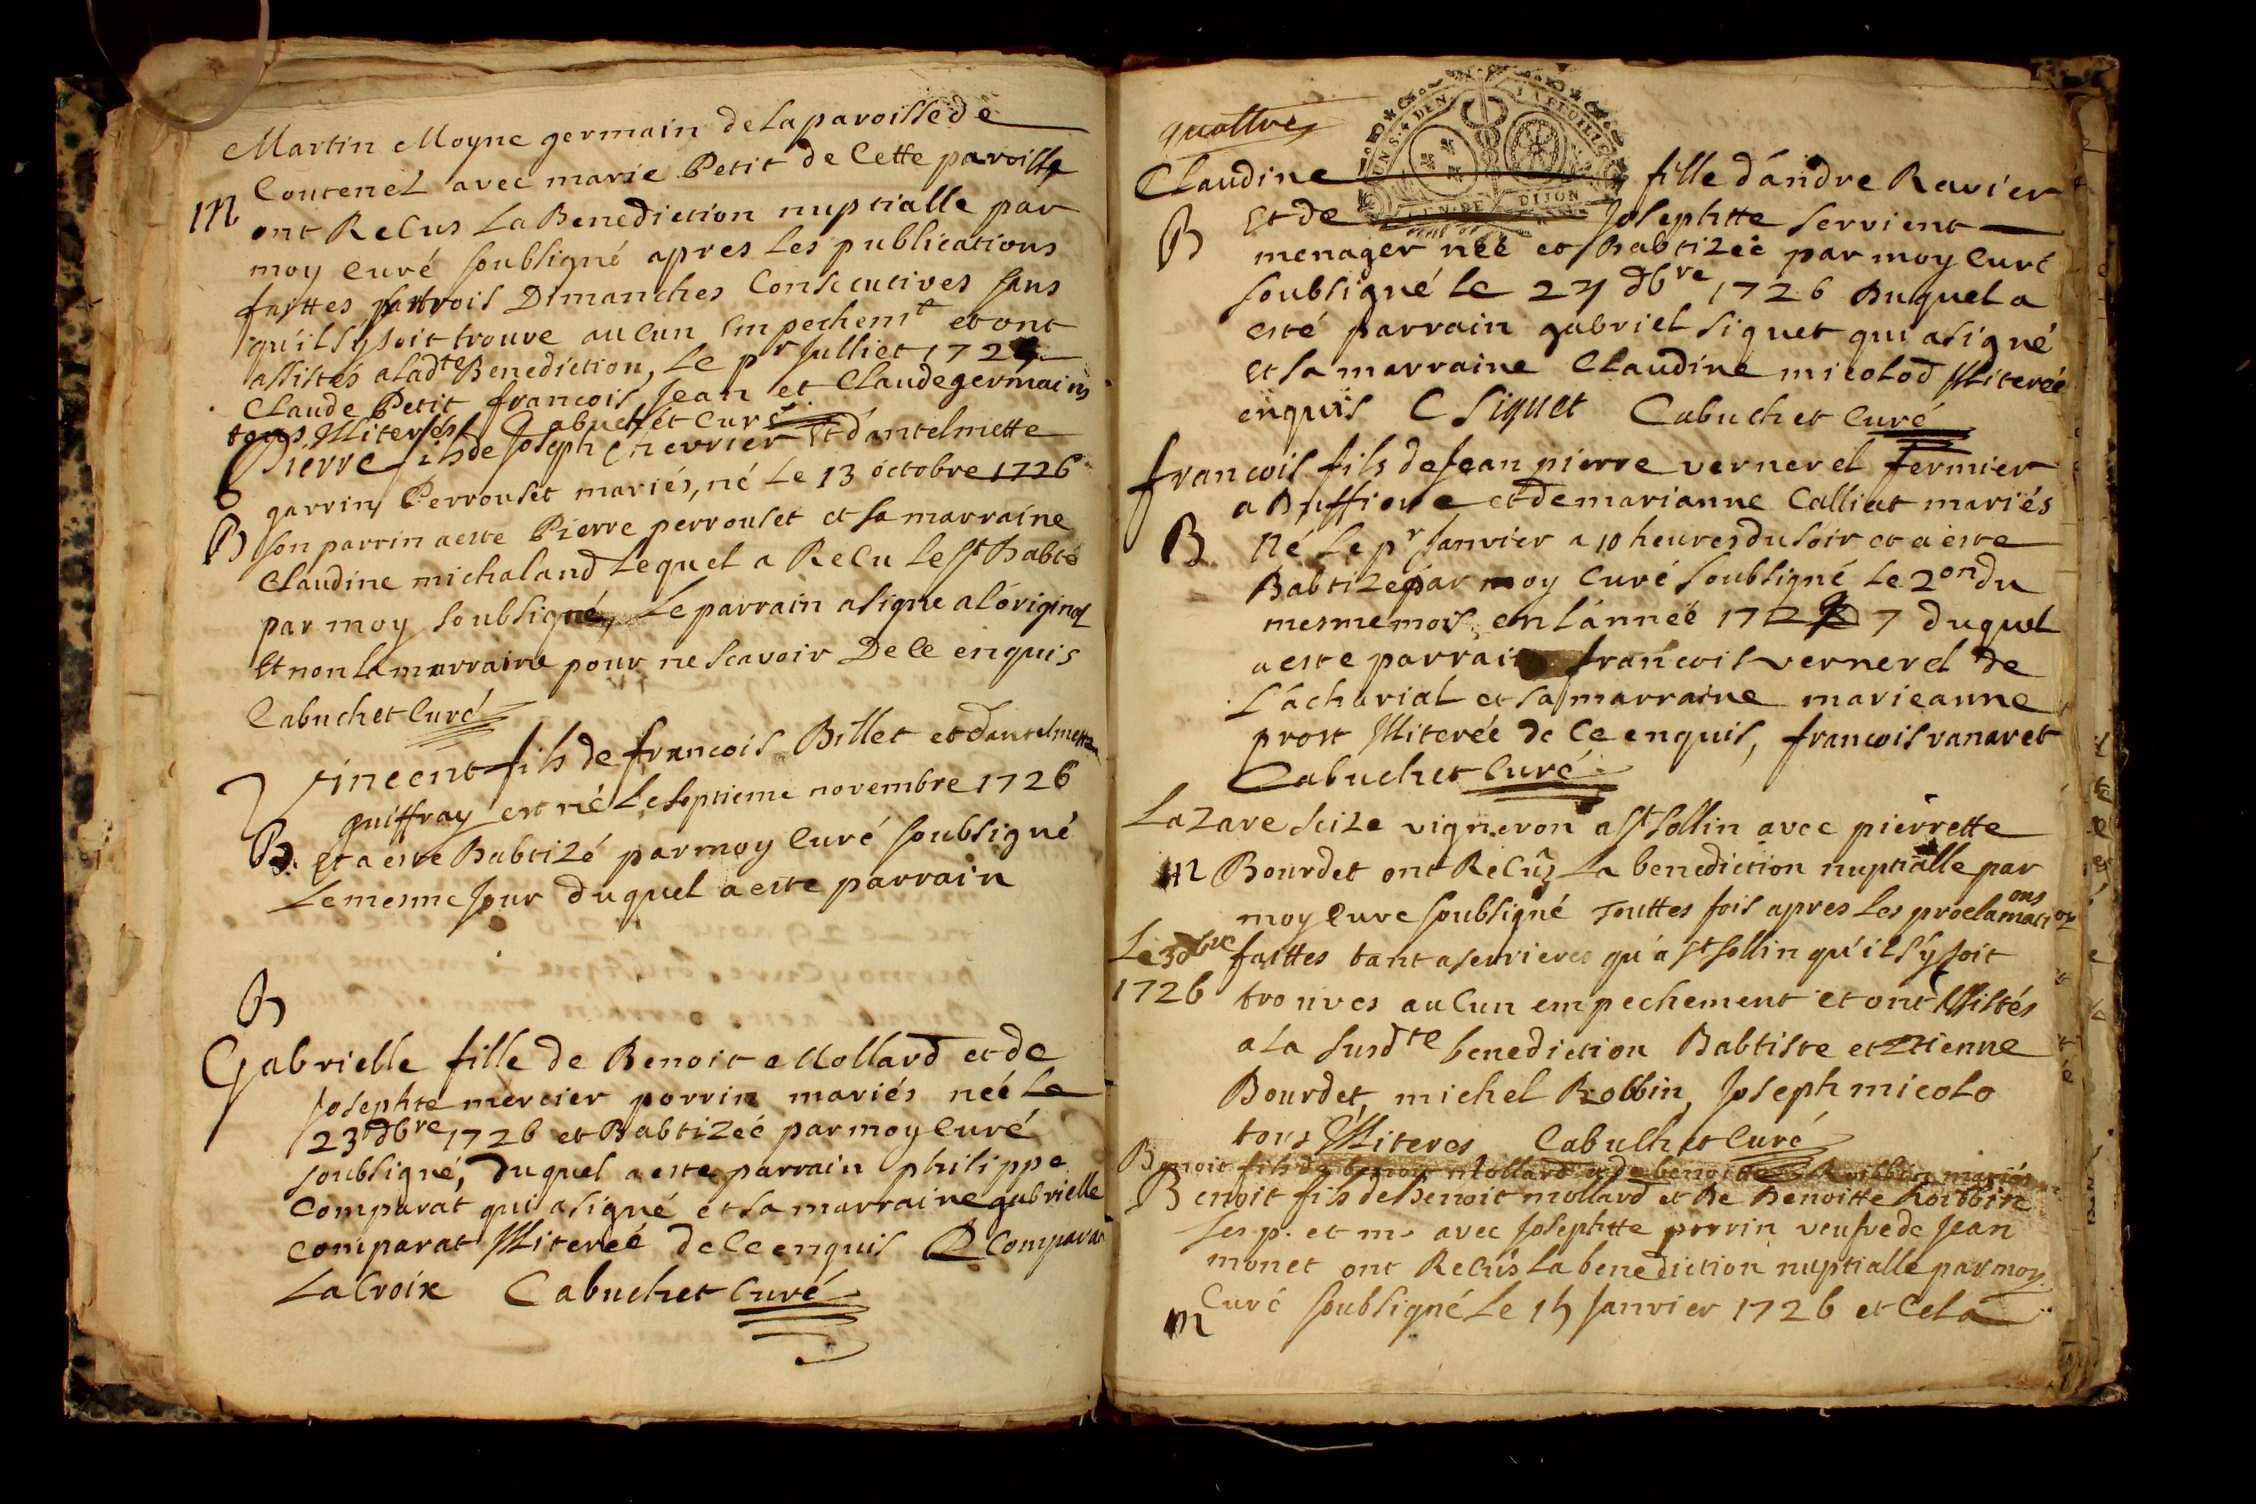 Martin Moyne germain de la paroisse de
Coutenel avec marie Petit de Cette paroisse
M
ont Recus La Benediction nuptialle par
moy Curé soubsigné apres les publications
faittes par trois Dimanches Consecutives sans
qu'il sy soit trouve aucun Empechemt et ont
assistés a ladte Benediction, Le pr Julliet 172
Claude Petit francois Jean et Claude germain
tous Illiterés Cabuchet Curé
Pierre fils de Joseph Chevrier Et dantelmette
garrin Perrouset mariés, né Le 13 octobre 1726
B
son parrin a este Pierre perrouset et sa marraine
Claudine michaland Lequel a Recu le st Babte
par moy soubsigné, Le parrain a signe a l'original
Et non la marraine pour ne scavoir De ce enquis
Cabuchet Curé
Vincent fils de francois Billet et dantelmette
guiffray est né Le septieme novembre 1726
B. Et a este Babtizé par moy Curé soubsigné
Le mesme Jour duquel a este parrain
B
Gabrielle fille de Benoit Mollard et de
Josephte mercier porrin mariés neé Le
23 dbre 1726 et Babtizeé par moy Curé
soubsigné, Duquel a este parrain philippe
Comparat qui a signé et sa marraine gabrielle
Comparat Illitereé de ce enquis P Comparat
La Croix Cabuchet Curé
quattre
UN S. 4 DEN. LA FEUILLE
GEN. DE DIJON
Claudine fille d'andre Ravier
Et de Josephtte servient
B
menager neé et Babtizeé par moy Curé
soubsigné Le 27 dbre 1726 Duquel a
esté parrain gabriel siquet qui a signé
et sa marraine Claudine micolod Illitereé
enquis C Siquet Cabuchet Curé
francois fils de Jean pierre vernerel fermier
a Buffiere et de marianne Calliat mariés
B. Né Le pr Janvier a 10 heures du soir et a este
Babtizé par moy Curé soubsigné Le 2on du
mesme mois en l'anneé 172 7 duquel
a este parrain francois vernerel de
L'acharial et sa marraine marieanne
prost Illitereé de ce enquis, francois vanaret
Cabuchet Curé
Lazare seize vigneron a st sollin avec pierrette
M Bourdet ont Recus La benediction nuptialle par
moy Curé soubsigné Touttes fois apres Les proclamations
Le 3 dbre faittes tant a serrieres qu'a st sollin qu'il sy soit
1726 trouves aucun empechement et ont assistés
a la susdte benediction Babtiste et Etienne
Bourdet, michel Robbin, Joseph micolo
tous Illiteres Cabuchet Curé
Benoit fils de benoit mollard et de benoitte Roibbin mariés
Benoit fils de Benoit mollard et De Benoitte Roibbin
ses p. et m. avec Josephtte porrin veufve de Jean
monet ont Recus La benediction nuptialle par moy
M Curé soubsigné Le 15 Janvier 1726 et Cela